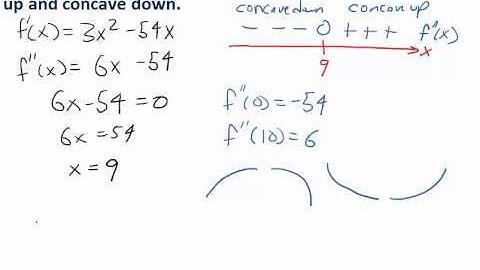 up and concave down.
f'(x) = 3x² - 54x
f"(x) = 6x - 54
6x - 54 = 0
6x = 54
x = 9
concave down concan up
- - - 0 + + + f"(x)
x
9
f"(0) = -54
f"(10) = 6